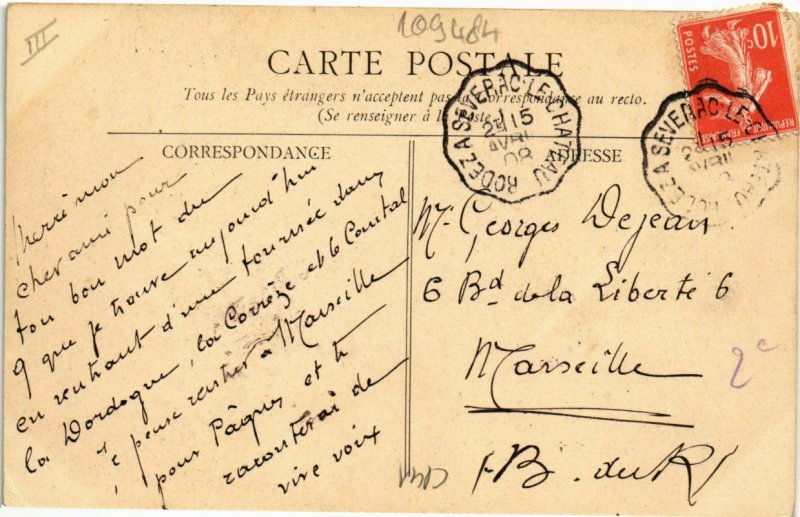 III
109484
CARTE POSTALE
Tous les Pays étrangers n'acceptent pas la correspondance au recto.
(Se renseigner à la Poste)
CORRESPONDANCE
ADRESSE
RODEZ A SEVERAC-LE-CHATEAU
15
AVRIL
08
RODEZ A SEVERAC-LE-CHATEAU
15
AVRIL
10c
POSTES
REPUBLIQUE FRANÇAISE
Merci mon
cher ami pour
ton bon mot du
9 que je trouve aujourd'hui
en rentrant d'une tournée dans
la Dordogne, la Corrèze et le Cantal
Je pense rentrer à Marseille
pour Pâques et te
raconterai de
vive voix
Mr. Georges Dejean
6 Bd de la Liberté 6
Marseille
(B. du R)
2c